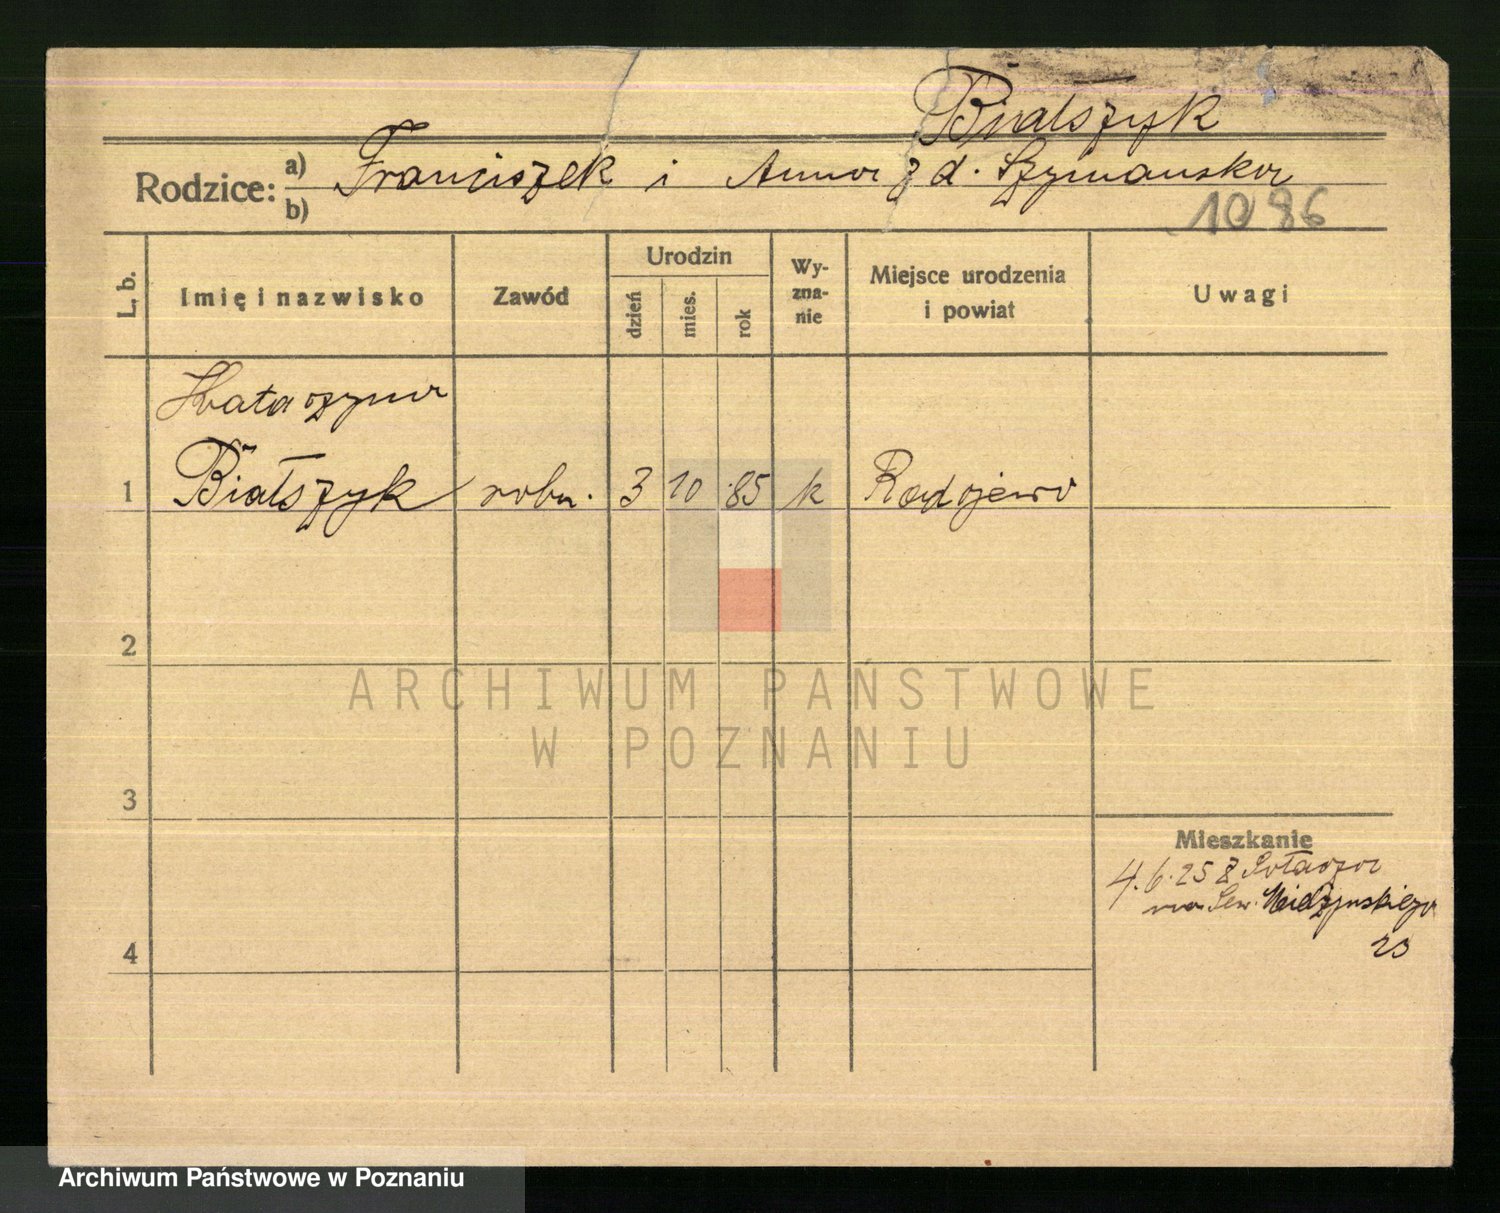 Białszyk
Rodzice: a) Franciszek i Anna z d. Szymańska
b)
1086
L. b.
Imię i nazwisko
Zawód
Urodzin
dzień
mies.
rok
Wy-
zna-
nie
Miejsce urodzenia
i powiat
Uwagi
Katarzyna
1 Białszyk robn. 3 10 85 k Radojewo
2
ARCHIWUM PAŃSTWOWE
W POZNANIU
3
Mieszkanie
4.6.25 z Sołacza
na
23
4
Archiwum Państwowe w Poznaniu